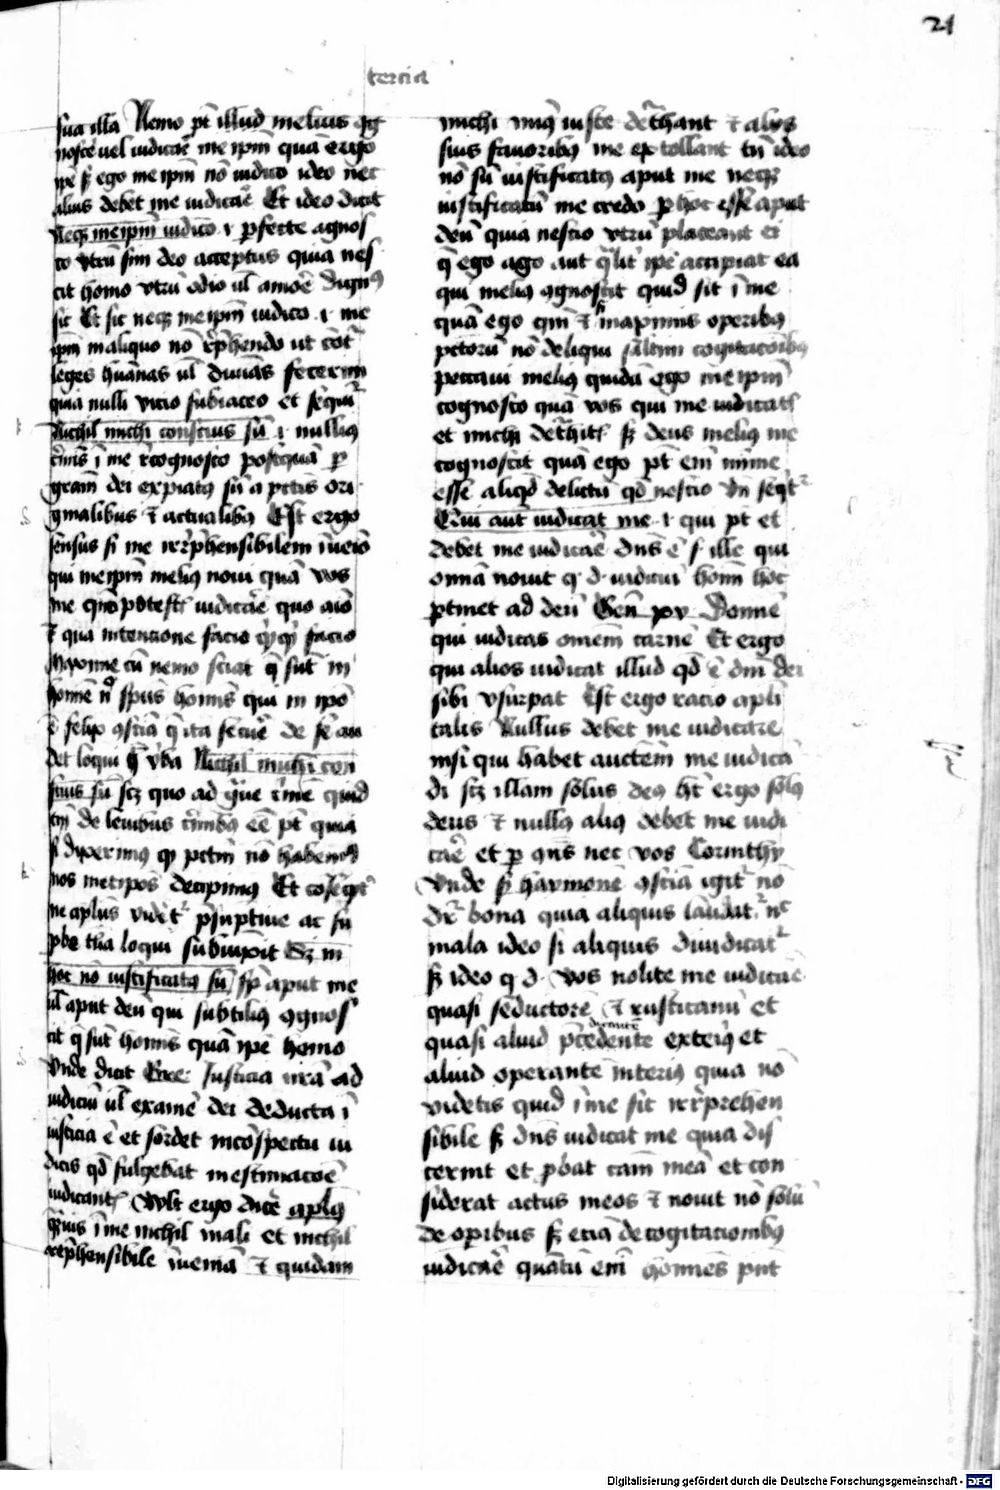 21
tercia
sua illa Nemo pt̄ illud melius ꝯg
noscē uel iudicāē me ip̄m quā ergo
ip̄e sꝫ ego me ip̄m nō iudico ideo nec
alius debet me iudicāē Et ideo dicit
Neqꝫ meip̄m iudico ·i· ꝑfecte agnos
co vtrū sim deo acceptus quia nes
cit homo vtrū odio ul̄ amoē dignꝰ
sit Et sic neqꝫ meip̄m iudico ·i· me
ip̄m in aliquo nō rep̄hendo ut cōt
leges hūanas ul̄ diuīas fecerim
quia nulli vicio subiaceo et seq̄uit
Nichil michi conscius sū ·i· nullius
c̄mīs ī me recognosco postquā ꝑ
grām dei expiatꝰ sū a pctīs ori
ginalibus ⁊ actualibꝫ Est ergo
sensus si me irrep̄hensibilem īuenio
qui meip̄m melius noui quā vos
me quō potestis iudicāē quo aīo
⁊ qua intencione facio facio
maxime cū nemo sciat q̄ sūt in
homīe nͥ spūs homīs qui in ipō
ē felix ꝯsciā q̄ ita secūē de se au
det loqui hͨ v̄ba Nichil michi con
scius sū scꝫ quo ad c̄me quid
de leuibus c̄mibꝫ eē pt̄ quia
si dixerimꝰ qꝫ pctm̄ nō habemꝰ
nos metipos decipimꝰ Et
ne apl̄us videt̄ p̄sūptiue ac
loqui subiūxit Sꝫ in
hoc nō iustificatꝰ sū aput me
ul̄ aput deū qui subtiliꝰ ꝯgnos
cit q̄ sūt homīs quā ip̄e homo
Vnde dicit Iusticia nr̄a ad
iudiciū ul̄ examē dei deducta ī
iusticia ē et sordet in cōspectu iu
dicis qd̄ fulgebat in estimacōē
iudicantꝭ Vult ergo dicē apl̄us
Quis ī me nichil mali et nichil
rep̄hensibile īueniā ⁊ quidam
michi iniuste det̄hant ⁊ alios
suis fauoribꝫ me extollant tn̄ ideo
nō sū iustificatꝰ aput me neqꝫ
iustificatū me credo ꝑ hoc esse aput
deū quia nescio vtrū placeant ei
q̄ ego ago aut q̄lit ip̄e accipiat ea
qui meliꝰ ꝯgnoscit quid sit ī me
quā ego em̄ ⁊ si in maximis operibꝫ
pctorū nō deliqui saltim cogitacōibꝫ
peccaui meliꝰ quidā ego me ip̄m
cognosco quā vos qui me iudicatꝭ
et michi det̄hitꝭ sꝫ deus meliꝰ me
cognoscit quā ego pt̄ em̄ in me
esse aliqd̄ delictū qd̄ nescio Vn̄ seqt̄
Qui aut̄ iudicat me ·i· qui pt̄ et
debet me iudicāē dn̄s ē s· ille qui
omīa nouit q· d· iudiciū homī hoc
ꝑtinet ad deū Gen̄ xv Domine
qui iudicas omēm carnē Et ergo
qui alios iudicat illud qd̄ ē dn̄i dei
sibi vsurpat Est ergo racio apl̄i
talis Nullus debet me iudicare
nisi qui habet auctem̄ me iudicā
di scꝫ illam solus deꝰ hꝫ ergo solꝰ
deus ⁊ nullꝰ aliꝰ debet me iudi
cāē et ꝑ ꝯn̄s nec vos Corinthy
Vnde sꝫ haymonē ꝯsciā igit̄ nō
dr̄ bona quia aliquis laudat̄ nec
mala ideo si aliquis diiudicat̄
sꝫ ideo q· d· Vos nolite me iudicāē
quasi seductorē ⁊ rusticanū et
quasi aliud dicentē exteriꝰ et
aliud operantē interiꝰ quia nō
videtis quid ī me sit irrep̄hen
sibile sꝫ dn̄s iudicat me quia dis
cernit et ꝓbat cām meā et con
siderat actus meos ⁊ nouit nō solū
de oꝑibus sꝫ eciā de cogitacionibꝫ
iudicāē quātū em̄ homīes pn̄t
Digitalisierung gefördert durch die Deutsche Forschungsgemeinschaft - DFG